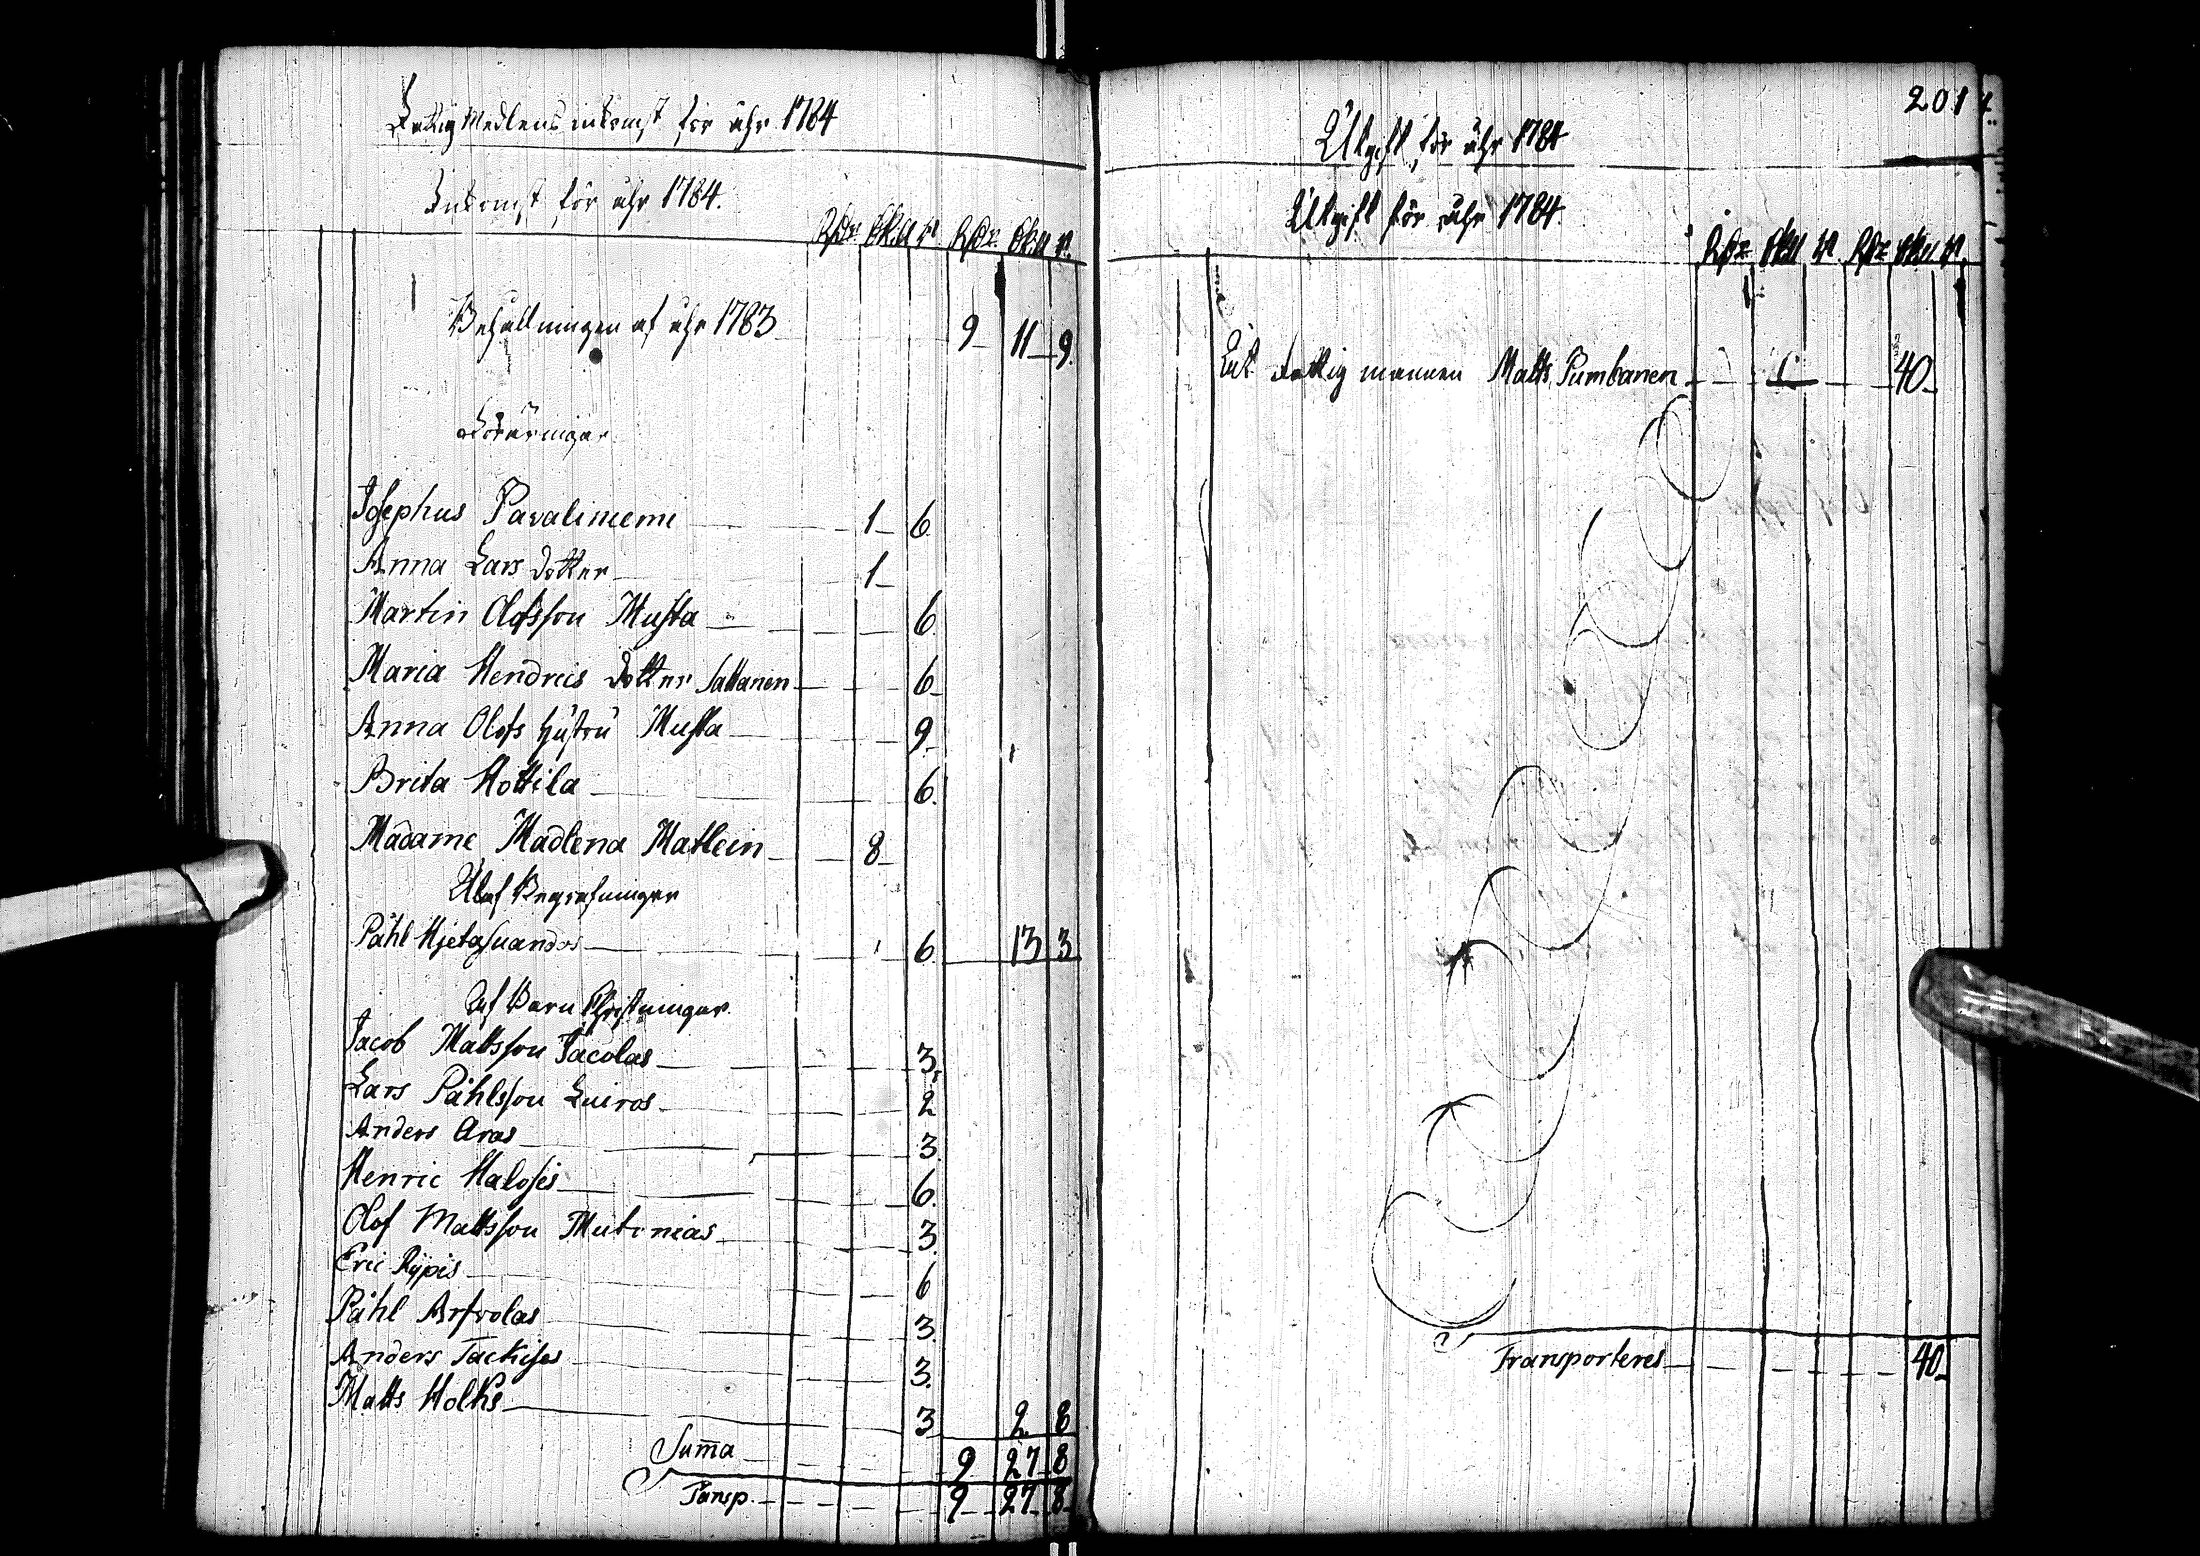 Fattig Medlens inkomst för åhr 1784
Inkomst för åhr 1784.
Rdr Skill rst Rdr Skill rst
Behållningen af åhr 1783 9 11 9.
Foräringar
Josephus Pavaliniemi 1 6.
Anna Lars dotter 1
Martin Olofsson Musta 6.
Maria Hendrics dotter Sattanen 6
Anna Olofs hustru Musta 9
Brita Hottila 6.
Madame Madlena Matlein 8
Utaf Begrafningar
Påhl Hjetasuandos 6. 13 3
Utaf Barn Christningar
Jacob Mattsson Jacolas 3.
Lars Påhlsson Luiros 2
Anders Aras 3.
Henric Halosis 6.
Olof Mattsson Mutenias 3.
Eric Rÿpis 6
Påhl Arfvolas 3.
Anders Tackises 3.
Matts Holks 3 2 8
Summa 9 27 8
Transp. 9 27 8
201
Utgift för åhr 1784
Utgift för åhr 1784.
Rdr Skill rst Rdr Skill rst
fattig mannen Matts Pumbanen 40
Transporteres 40